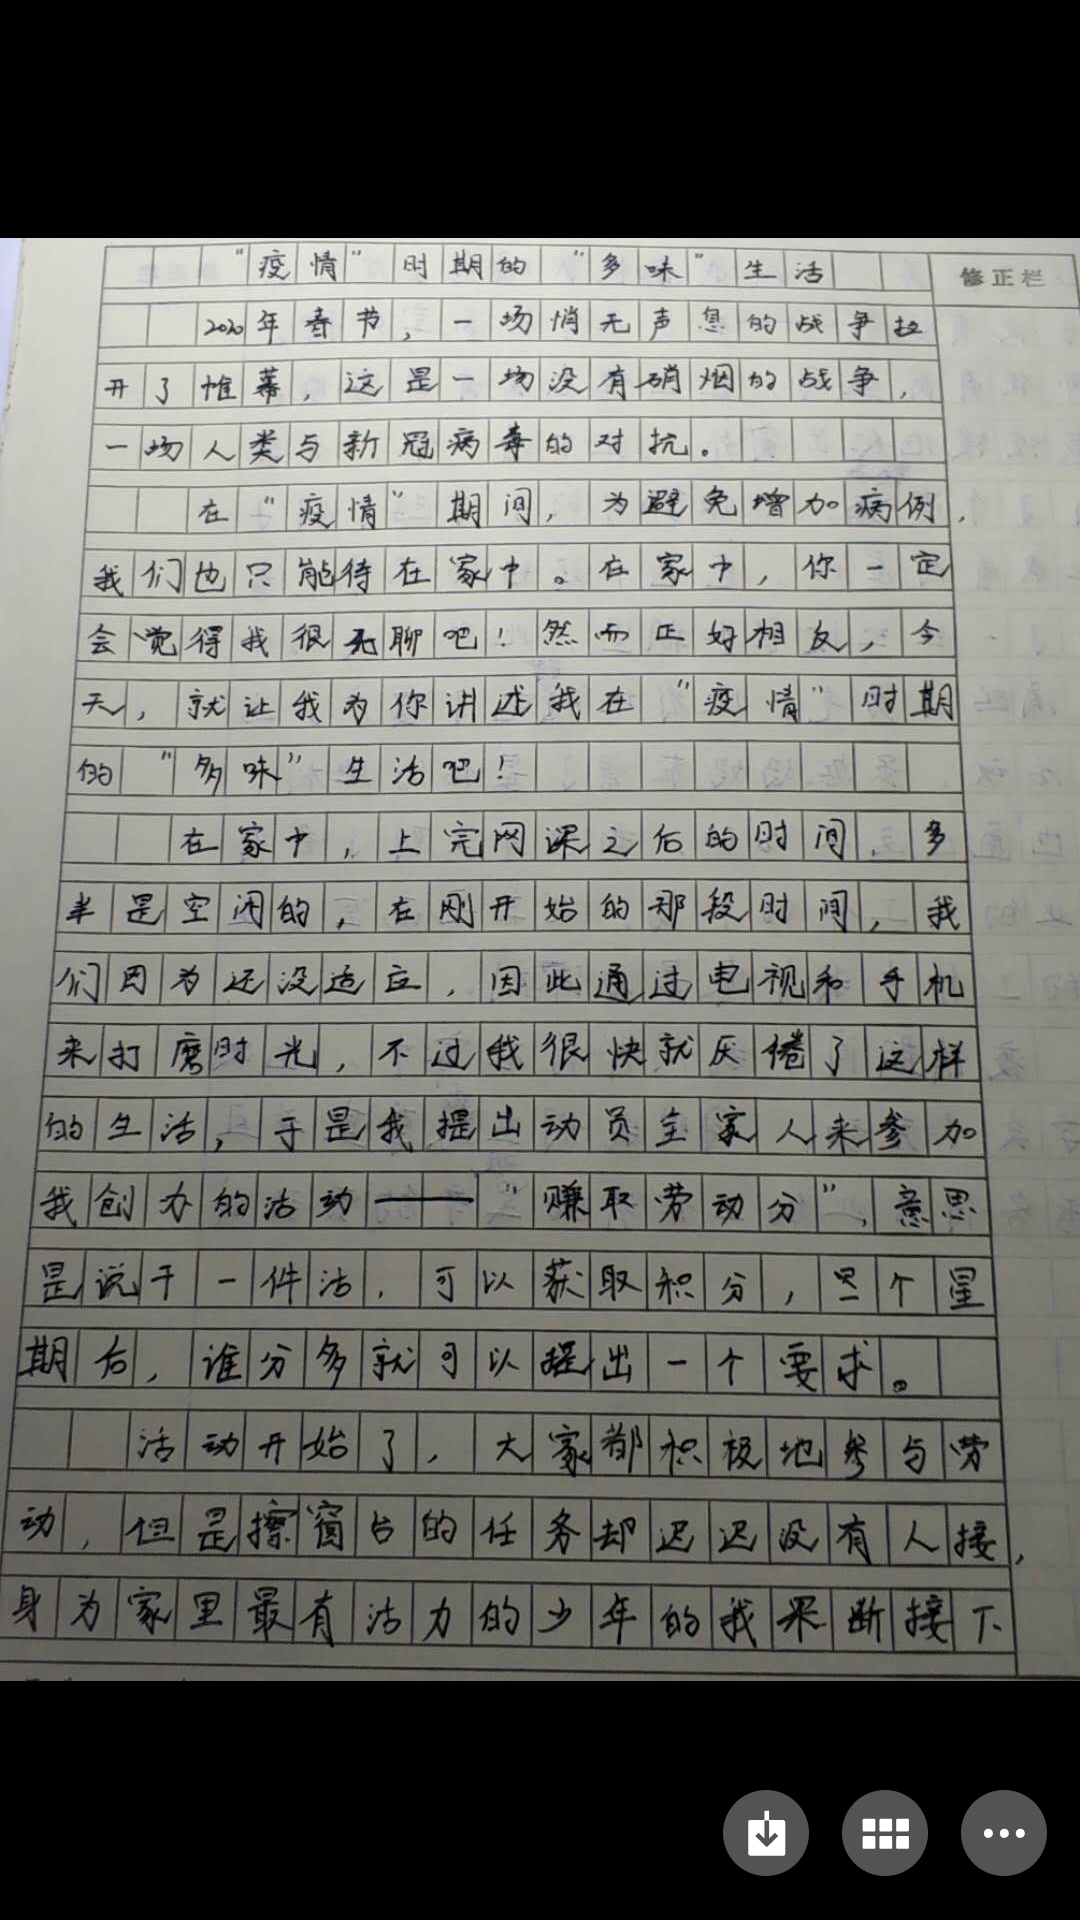 “疫情”时期的“多味”生活
修正栏
2020年春节，一场悄无声息的战争拉
开了帷幕，这是一场没有硝烟的战争，
一场人类与新冠病毒的对抗。
在“疫情”期间，为避免增加病例，
我们也只能待在家中。在家中，你一定
会觉得我很无聊吧！然而正好相反，今
天，就让我为你讲述我在“疫情”时期
的“多味”生活吧！
在家中，上完网课之后的时间，多
半是空闲的，在刚开始的那段时间，我
们因为还没适应，因此通过电视和手机
来打磨时光，不过我很快就厌倦了这样
的生活，于是我提出动员全家人来参加
我创办的活动——“赚取劳动分”，意思
是说干一件活，可以获取积分，一个星
期后，谁分多就可以提出一个要求。
活动开始了，大家都积极地参与劳
动，但是擦窗台的任务却迟迟没有人接，
身为家里最有活力的少年的我果断接下